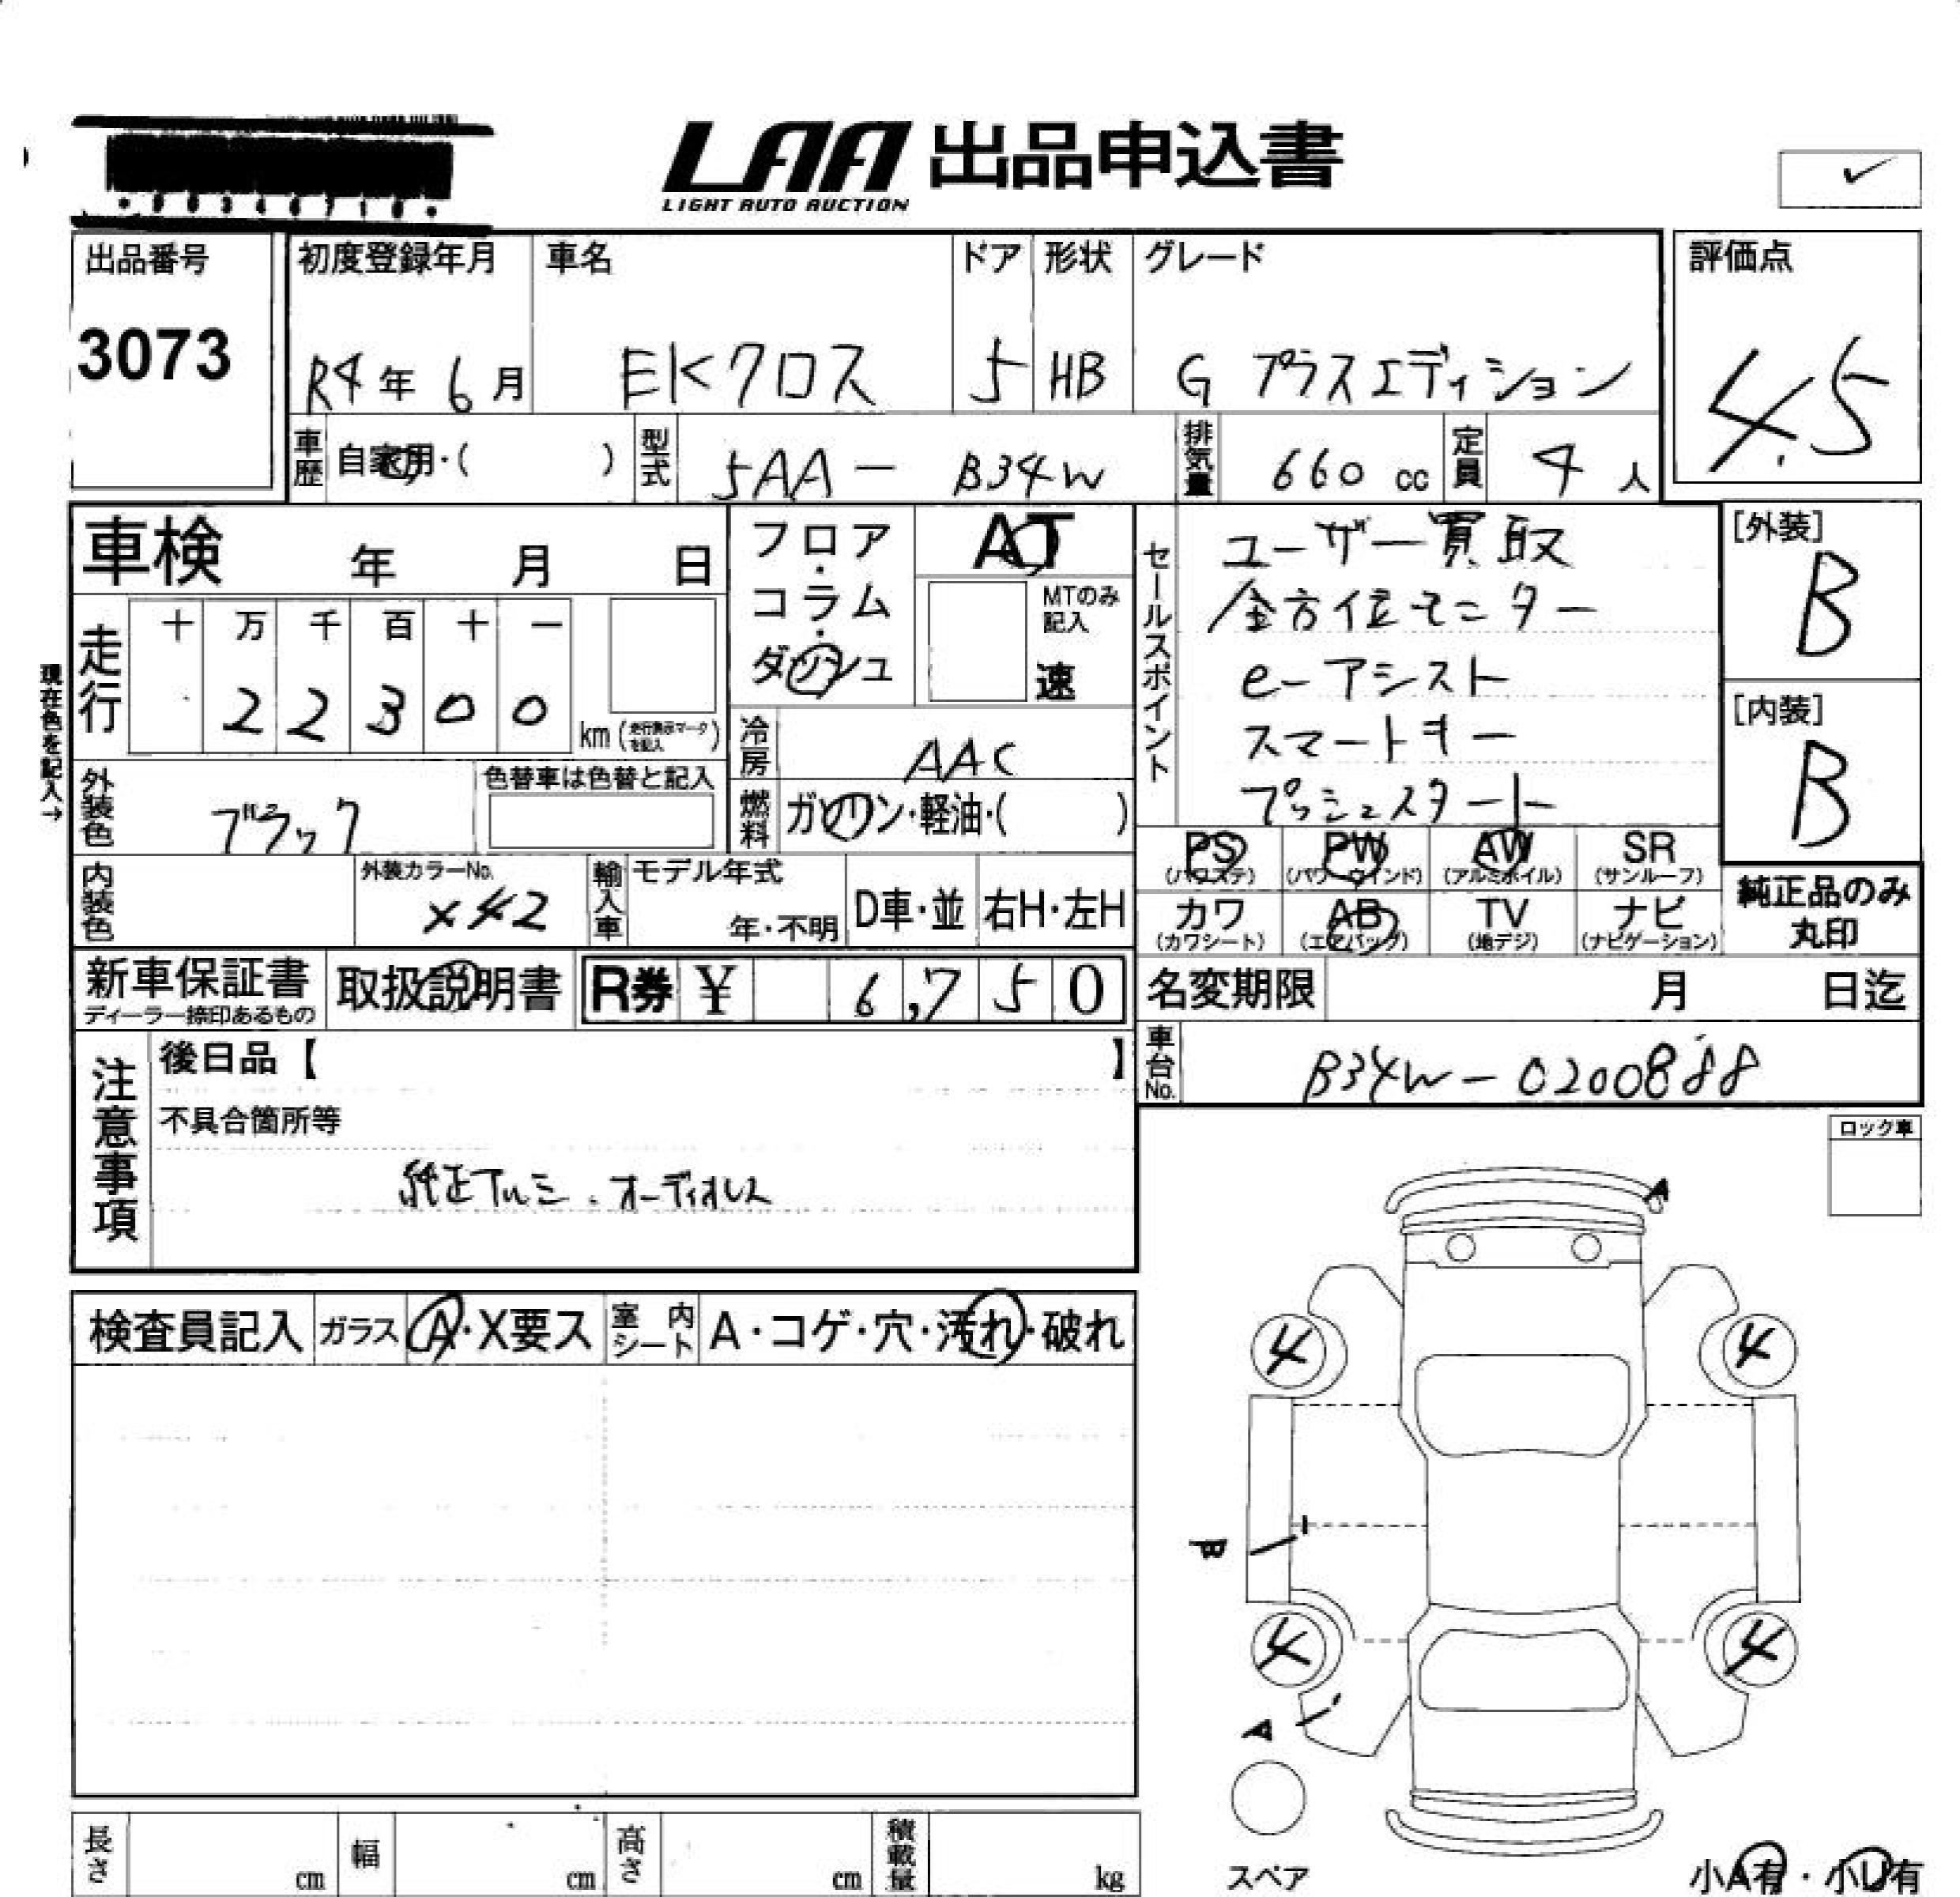 LAA 出品申込書
LIGHT AUTO AUCTION
出品番号
3073
初度登録年月
R4年 6月
車名
EKクロス
ドア
5
形状
HB
グレード
G プラスエディション
評価点
4.5
車歴
自家用・( )
型式
5AA - B34W
排気量
660 cc
定員
4 人
車検 年 月 日
フロア・コラム・ダッシュ
AT
MTのみ記入
速
セールスポイント
ユーザー買取
全方位モニター
e-アシスト
スマートキー
プッシュスタート
[外装]
B
[内装]
B
現在色を記入→
走行
十 万 千 百 十 一
2 2 3 0 0
km (走行表示マークを記入)
冷房
AAC
燃料
ガソリン・軽油・( )
外装色
ブラック
色替車は色替と記入
内装色
外装カラーNo.
X42
輸入車
モデル年式
年・不明
D車・並
右H・左H
PS (パワステ)
PW (パワーウインド)
AW (アルミホイル)
SR (サンルーフ)
カワ (カワシート)
AB (エアバッグ)
TV (地デジ)
ナビ (ナビゲーション)
純正品のみ
丸印
新車保証書
ディーラー捺印あるもの
取扱説明書
R券 ¥ 6,750
名変期限 月 日迄
車台No.
B34W-0200888
注意事項
後日品【 】
不具合箇所等
純正アルミ . オーディオレス
ロック車
検査員記入
ガラス
A・X要ス
室内シート
A・コゲ・穴・汚れ・破れ
A
4
4
B
4
4
A
スペア
小A有・小U有
長さ cm
幅 cm
高さ cm
積載量 kg